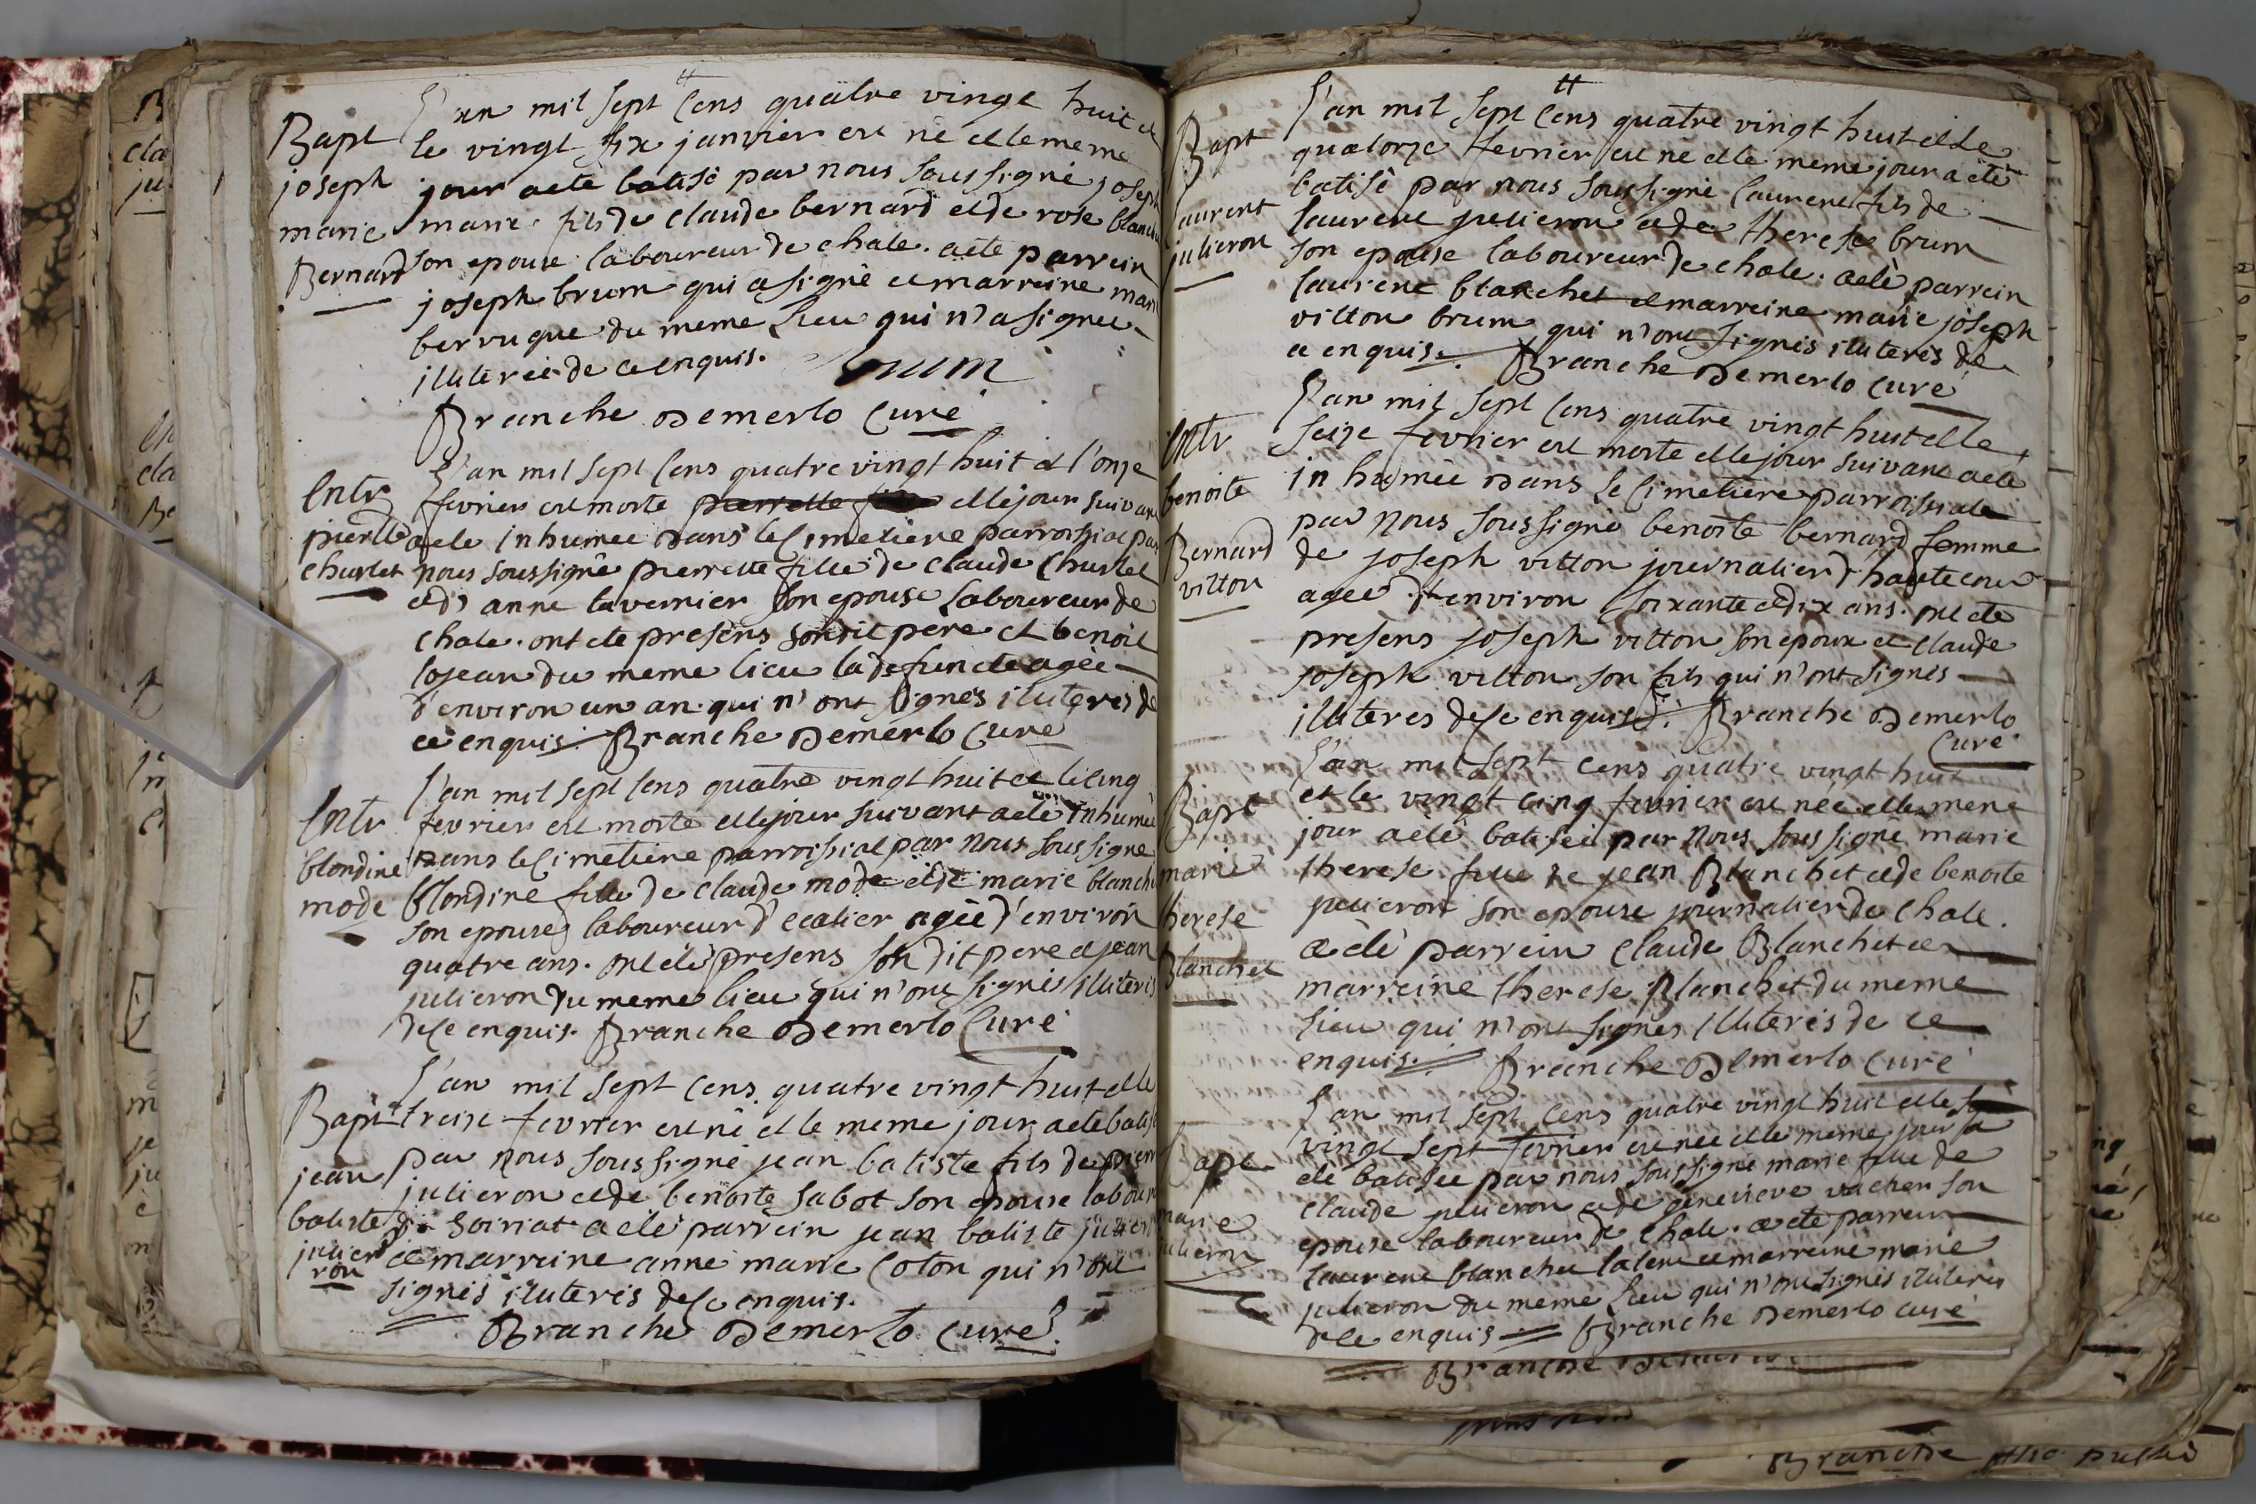 Bapt
joseph
marie
Bernard
L'an mil sept cens quatre vingt huit et
le vingt six janvier est né et le meme
jour a eté batisé par nous soussigné joseph
marie fils de claude bernard et de rose blanchet
son epouse laboureur de chale. a eté parrein
joseph brum qui a signé et marreine marie
berruque du meme lieu qui n'a signée
illiterée de ce enquis. Brum
Branche Demerlo curé
Entr
pierette
churlet
L'an mil sept cens quatre vingt huit et l'onze
fevrier est morte et le jour suivant
a ete inhumee dans le cimetiere parroissial par
nous soussigné pierrette fille de claude churlet
et d'anne tavernier son epouse laboureur de
chale. ont ete presens son dit pere et benoit
du meme lieu la defuncte agée
d'environ un an. qui n'ont signés illiterés de
ce enquis. Branche Demerlo curé
Entr
blondine
mode
L'an mil sept cens quatre vingt huit et le cinq
fevrier est morte et le jour suivant a eté inhumée
dans le cimetiere parroissial par nous soussigné
blondine fille de claude mode et de marie blanchet
son epouse laboureur d'ecalier agée d'environ
quatre ans. ont eté presens son dit pere et jean
julieron du meme lieu qui n'ont signés illiterés
de ce enquis. Branche Demerlo curé
Bapt
jean
batiste
julier
ron
L'an mil sept cens quatre vingt huit et le
treise fevrier est né et le meme jour a ete batisé
par nous soussigné jean batiste fils de pierre
julieron et de benoite sabot son epouse laboureur
de soiriat a eté parrein jean batiste julieron
et marreine anne marie coton qui n'ont
signés illiterés de ce enquis.
Branche Demerlo curé
Bapt
laurent
julieron
L'an mil sept cens quatre vingt huit et le
quatorze fevrier est né et le meme jour a eté
batisé par nous soussigné laurent fils de
laurent julieron et de therese brum
son epouse laboureur de chale. a eté parrein
laurent blanchet et marreine marie joseph
vitton brum qui n'ont signés illiterés de
ce enquis. Branche Demerlo curé
Entr
benoite
Bernard
vitton
L'an mil sept cens quatre vingt huit et le
seize fevrier est morte et le jour suivant a eté
inhumée dans le cimetiere parroissiale
par nous soussigné benoite bernard femme
de joseph vitton journalier d'hautecour
agée d'environ soixante et dix ans. ont ete
presens joseph vitton son epoux et claude
joseph vitton son fils qui n'ont signés
illiterés de ce enquis. Branche Demerlo
curé
Bapt
marie
therese
Blanchet
L'an mil sept cens quatre vingt huit
et le vingt cinq fevrier est née et le meme
jour a eté batisée par nous soussigné marie
therese fille de jean Blanchet et de benoite
julieron son epouse journalier de chale.
a eté parrein claude Blanchet et
marreine therese Blanchet du meme
lieu qui n'ont signés illiterés de ce
enquis. Branche Demerlo curé
Bapt
marie
julieron
L'an mil sept cens quatre vingt huit et le
vingt sept fevrier est née et le meme jour a
eté batisée par nous soussigné marie fille de
claude julieron et de genevieve vacher son
epouse laboureur de chale. a ete parrein
laurent blanchet et marreine marie
julieron du meme lieu qui n'ont signés illiterés
de ce enquis Branche Demerlo curé
Branche
Branche